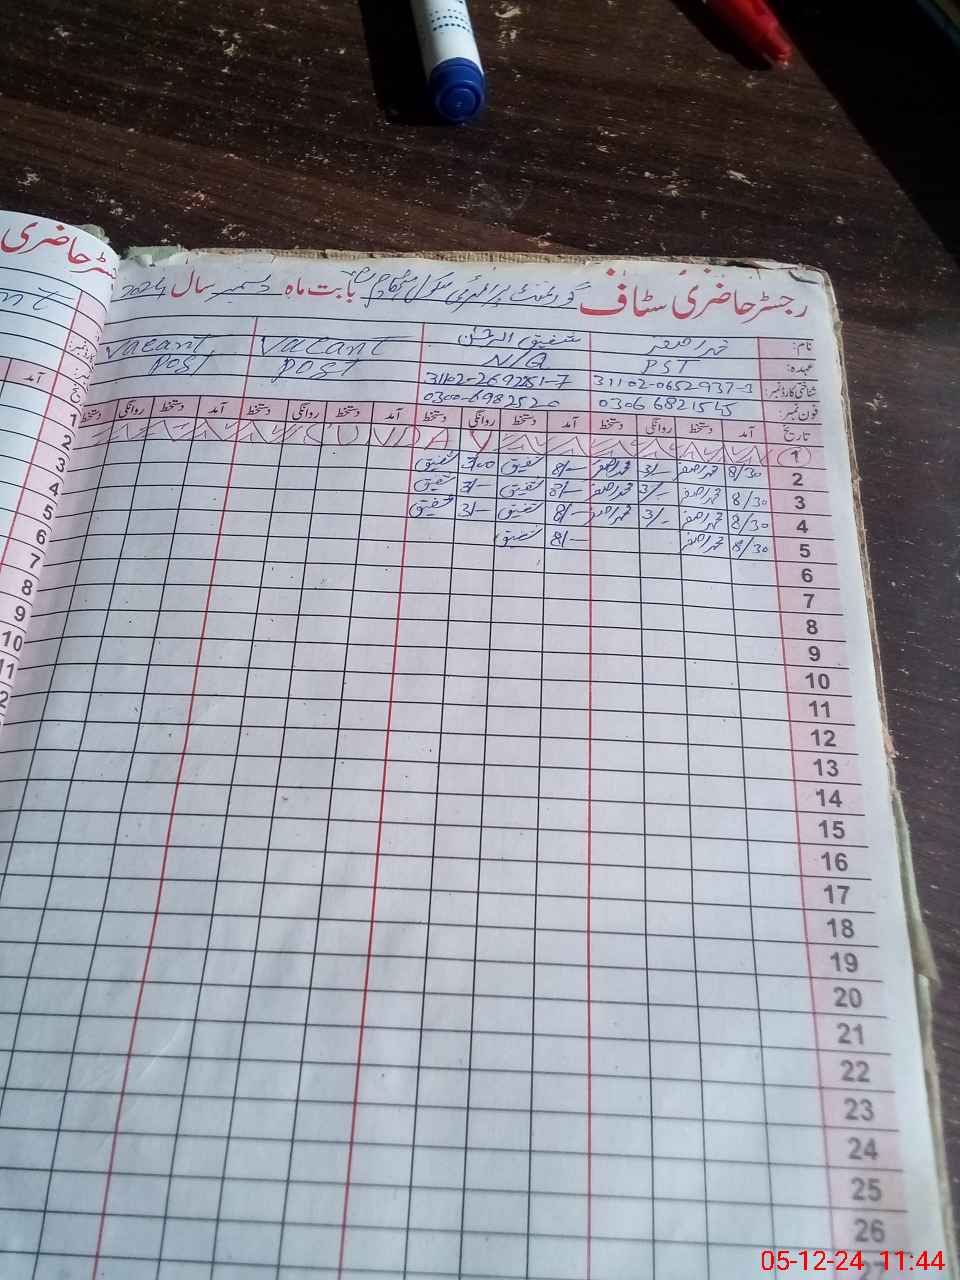 رجسٹر حاضری سٹاف گورنمنٹ پرائمری سکول بابت ماہ دسمبر سال 2024
نام: محمد اصغر شفیق الرحمٰن Vacant Vacant
عہدہ: PST N/Q POST POST
شناختی کارڈ نمبر: 31102-0652937-3
فون نمبر: 0306 6821545
تاریخ آمد دستخط روانگی دستخط آمد دستخط روانگی دستخط آمد دستخط روانگی دستخط آمد دستخط روانگی دستخط
1
2 8/30 محمد اصغر 3/- محمد اصغر 8/- شفیق 3/00 شفیق
3 8/30 محمد اصغر 3/- محمد اصغر 8/- شفیق 3/- شفیق
4 8/30 محمد اصغر 3/- محمد اصغر 8/- شفیق 3/- شفیق
5 8/30 محمد اصغر 8/- شفیق
6
7
8
9
10
11
12
13
14
15
16
17
18
19
20
21
22
23
24
25
26
27
رجسٹر حاضری
آمد
1
2
3
4
5
6
7
8
9
10
11
05-12-24 11:44